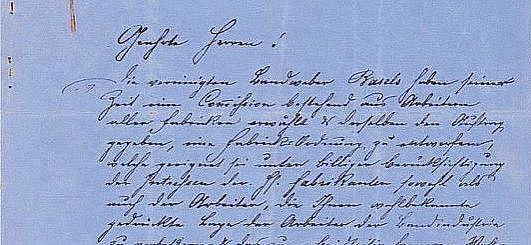 Geehrte Herren!
Die vereinigten Bandweber Basels haben seiner
Zeit eine Comission bestehend aus Arbeitern
aller Fabriken erwählt & derselben den Auftrag
gegeben, eine Fabrik-Ordnung zu entwerfen,
welche geeignet sei unter billiger Berücksichtigung
der Interessen der H. Fabrikanten sowohl als
auch der Arbeiter, die Ihnen wohlbekannte
gedrückte Lage der Arbeiter der Bandindustrie